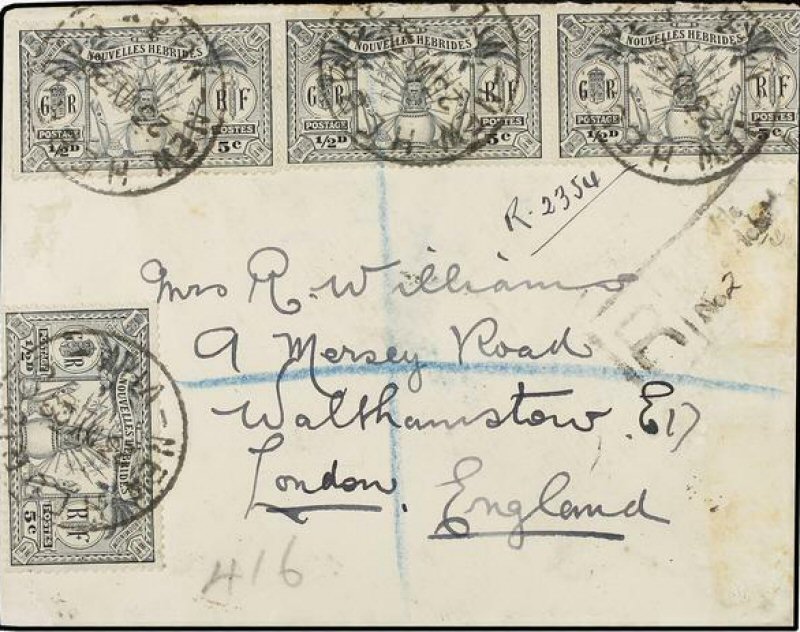 NOUVELLES HEBRIDES NOUVELLES HEBRIDES NOUVELLES HEBRIDES
G R R F G R R F G R R F
POSTAGE POSTES POSTAGE POSTES POSTAGE POSTES
1/2D 5c 1/2D 5c 1/2D 5c
NEW H
R-2354
Mrs R. Williams
R
No2
9 Mersey Road
Walthamstow. E17
London. England
NOUVELLES HEBRIDES
G R R F
POSTAGE POSTES
1/2D 5c
416